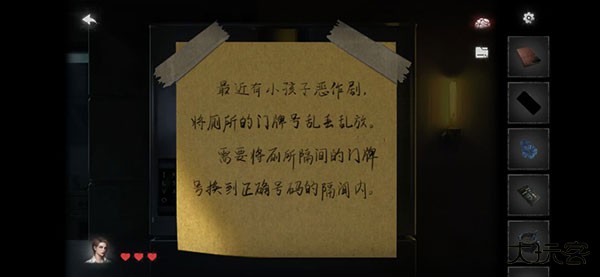 最近有小孩子恶作剧，
将厕所的门牌号乱丢乱放。
需要将厕所隔间的门牌
号换到正确号码的隔间内。
大玩客